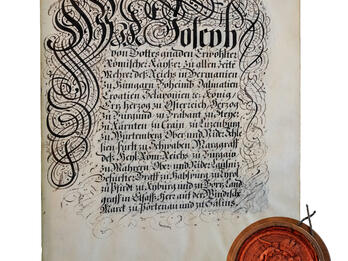 Wir Joseph
von Gottes gnaden Erwöhlter
Römischer Kayser zu allen Zeite
Mehrer deß Reichs in Germanien
zu Hungarn Boheimb Dalmatien
Croatien Sclavonien ec König
Ertz Herzog zu Österreich Herzog
zu Burgund zu Brabant zu Steyer
zu Kärnten zu Crain zu Luzenburg
zu Würtenberg Ober und Nider Schle
sien Fürst zu Schwaben Marggraff
deß Heyl Röm Reichs zu Burgaw
zu Mähren Ober und Nider Laußniz
Gefürster Graff zu Habspurg zu Tyrol
zu Pfirdt zu Kyburg und zu Görz Land
graff in Elsaß Herr auf der Windische
Marck zu Portenau und zu Salins